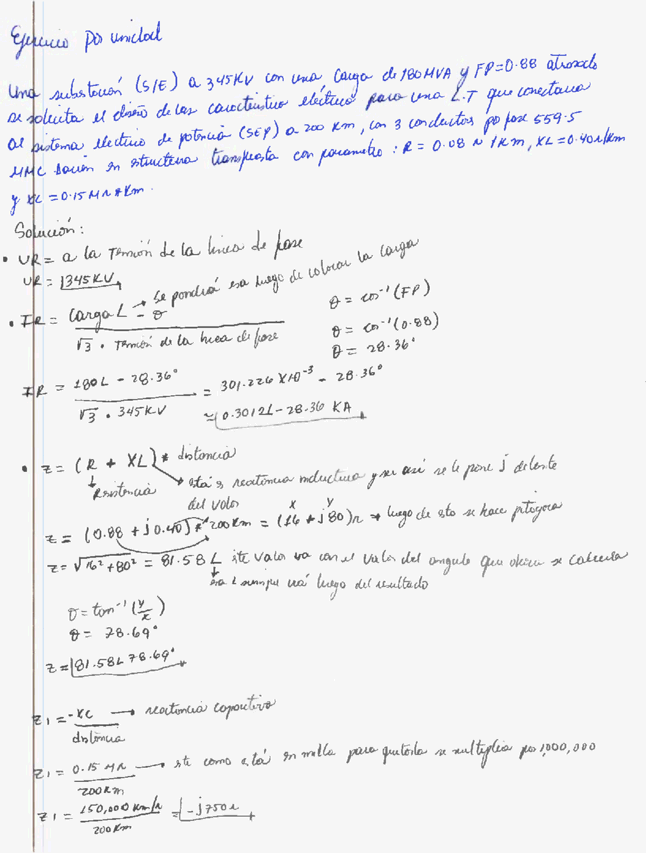 Ejercicio por unidad
Una substación (S/E) a 345KV con una carga de 180MVA y FP=0.88 atrasado
se solicita el diseño de las característica eléctrica para una L.T que conectara
al sistema electrico de potencia (SEP) a 200 Km, con 3 conductores por fase 559.5
MMC en structura transpuesta con parametro: R = 0.08 Ω/km, XL=0.40Ω/km
y XC=0.15 MΩ*Km.
Solución:
• VR= a la Tensión de la linea de fase
VR= 345KV
• IR= Carga L - θ → se pondrá esa luego de colocar la carga
√3 • Tensión de la linea de fase
θ = cos⁻¹(FP)
θ = cos⁻¹(0.88)
θ = 28.36°
IR = 180L - 28.36° = 301.226X10⁻³ - 28.36°
√3 • 345KV ≈ 0.3012L-28.36 KA
• Z= (R + XL) * distancia
Resistencia está s reactancia inductiva y se le pone j delante
del valor
Z = (0.88 + j0.40) * 200Km = (16 + j80)Ω → luego de sto se hace pitagora
x y
Z= √16²+80² = 81.58 L ste valor va con el valor del angulo que se calcula
esa L siempre luego del resultado
θ=tan⁻¹(y/x)
θ= 78.69°
Z= 81.58L78.69°
Z1= -XC → reactancia capacitiva
distancia
Z1= 0.15 MΩ → ste como está en para quitarla se multiplica por 1,000,000
200Km
Z1= 150,000 km/Ω = -j750Ω
200Km